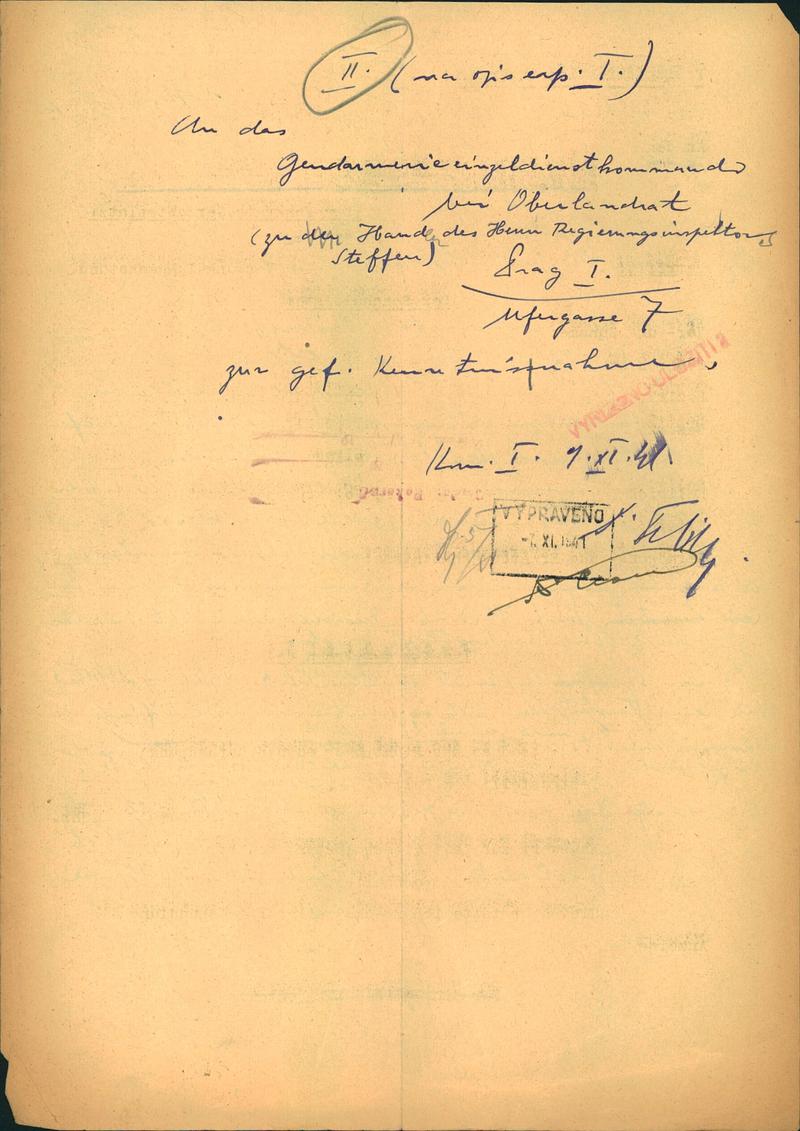 II. (na opis exp. I.)
An das
Gendarmerieeinzeldienstkommando
bei Oberlandrat
(zu den Hand des Herrn Regierungsinspektors
Steffen)
Prag I.
Ufergasse 7
zur gef. Kenntnisnahme,
VYŘÍZENO
Kom. I. 7.XI.41.
VYPRAVENO
-7. XI. 1941